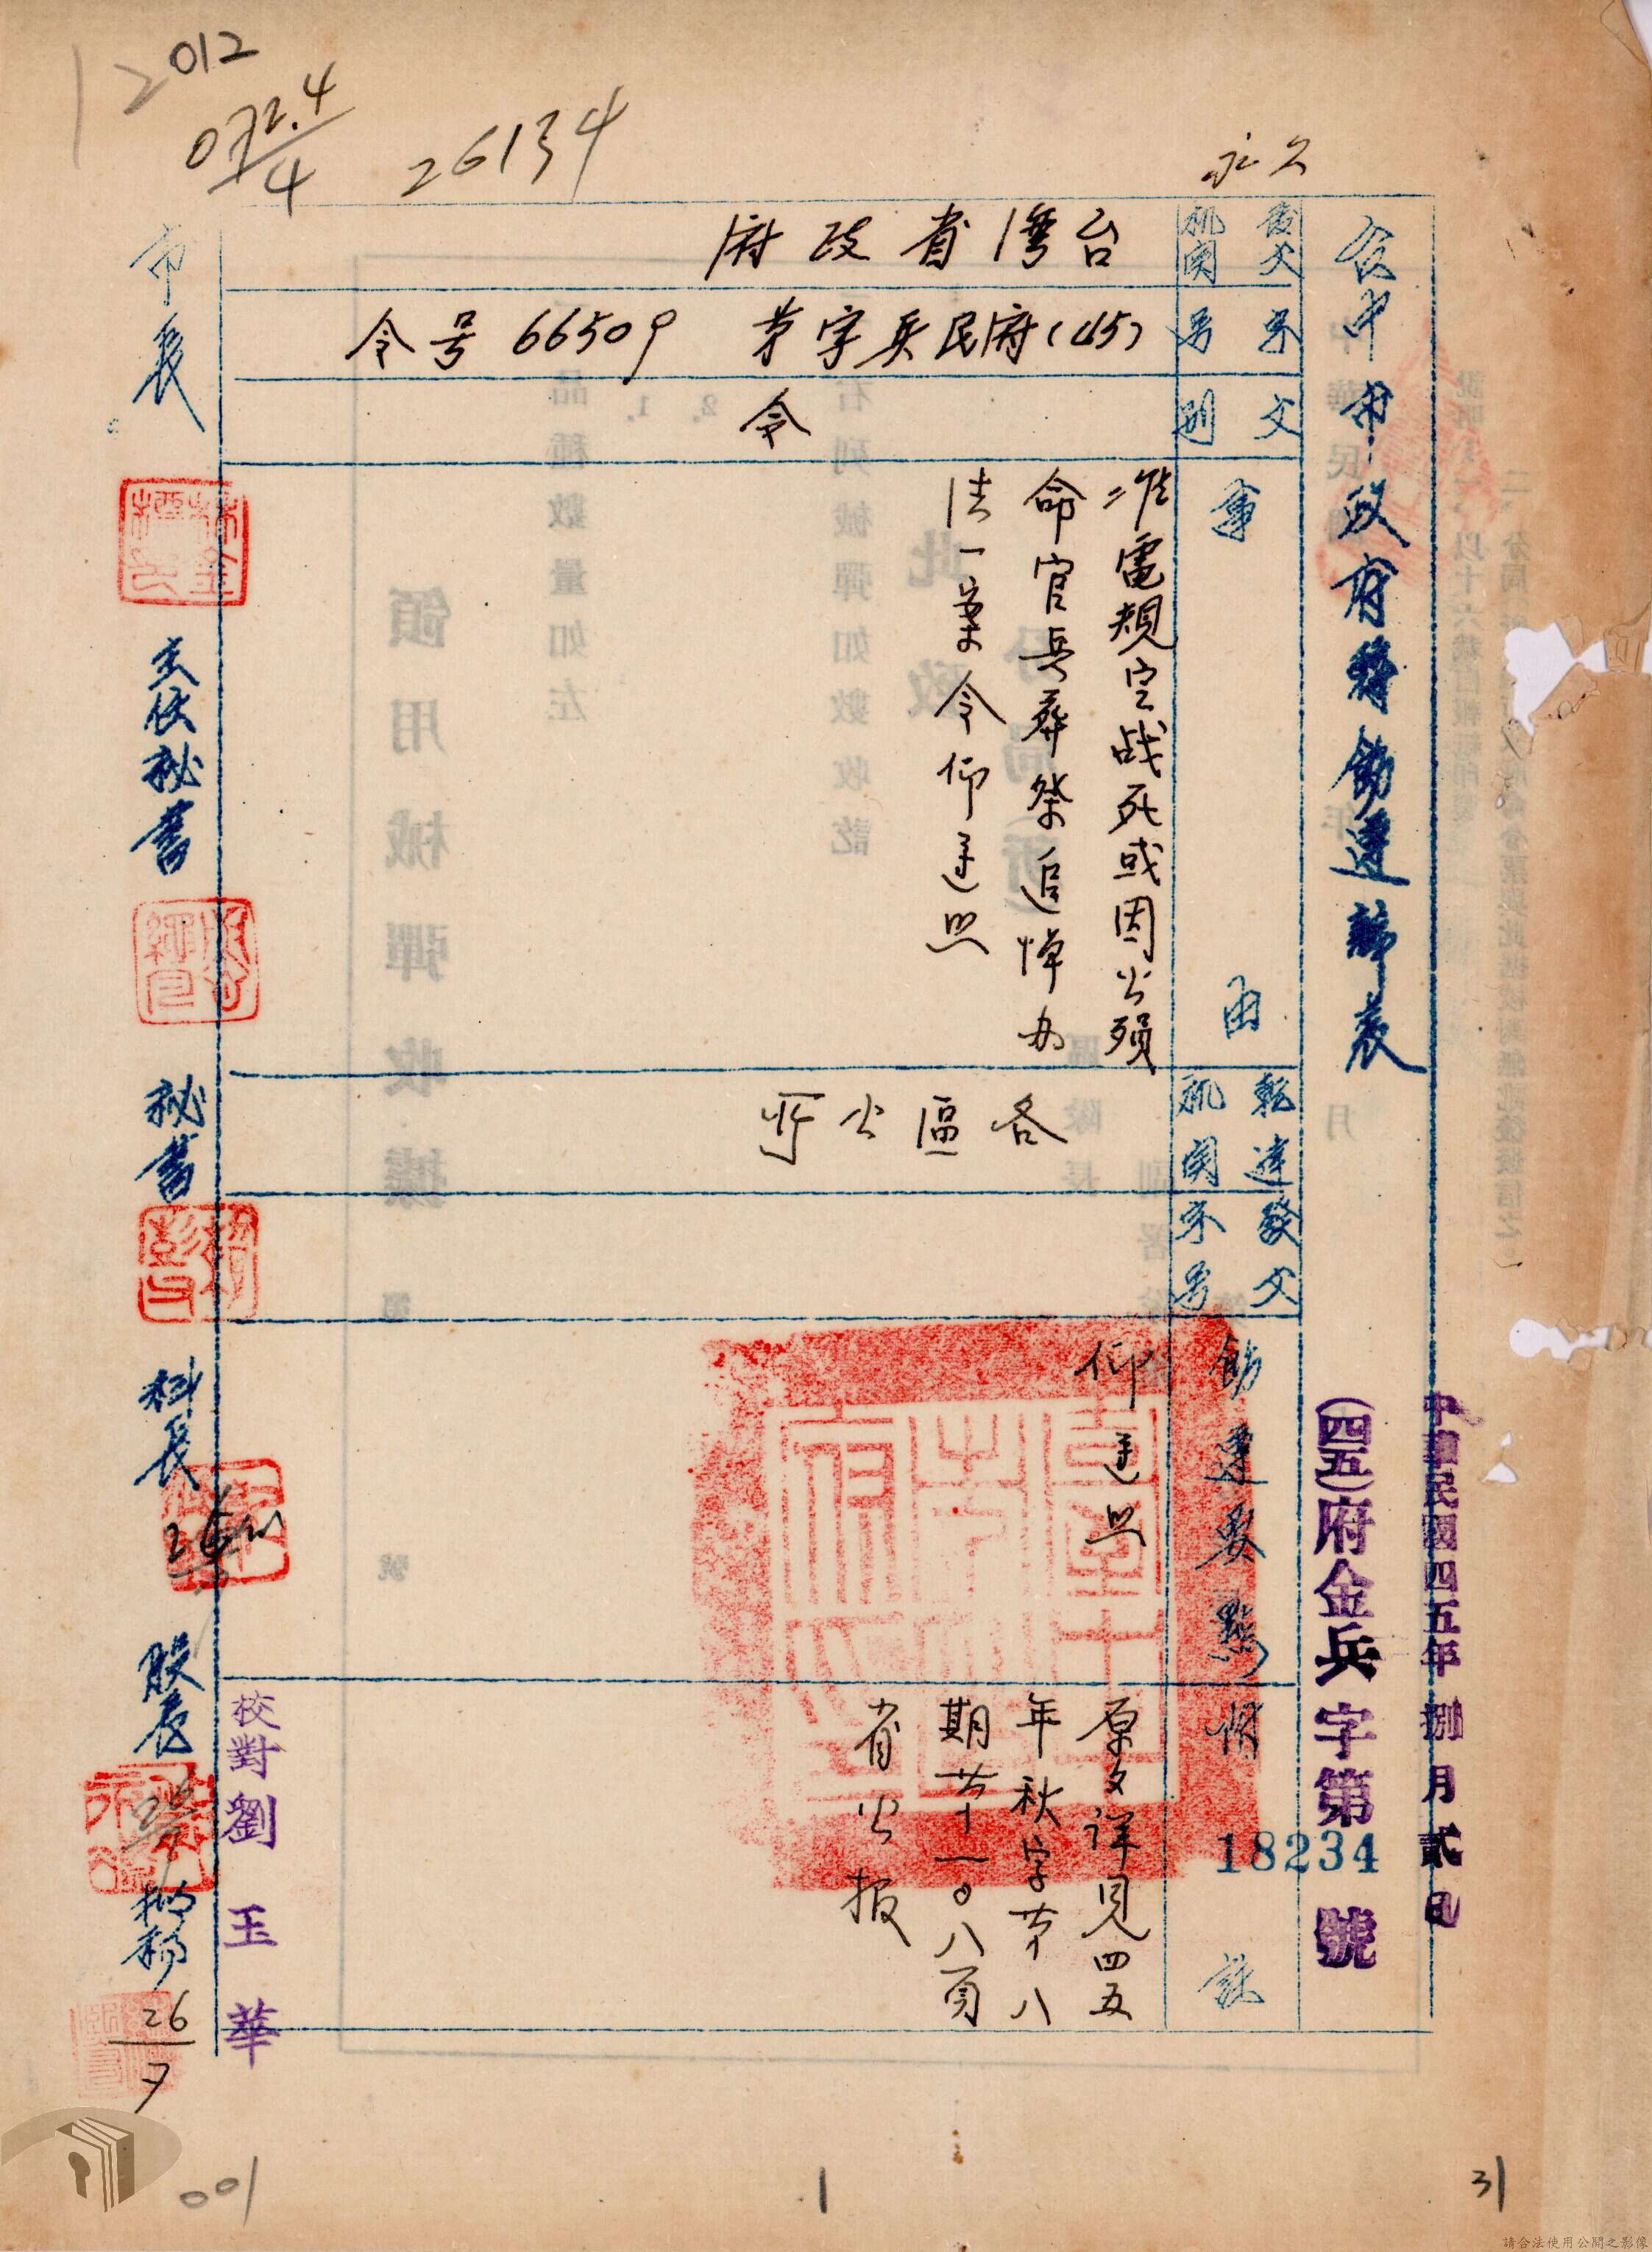 012
26134
永久
台中市政府轉飭遵辦表
中華民國四五年捌月貳日
(四五)府金兵字第18234號
發文机関
台湾省政府
字号
(45)府民兵字第66509号令
文别
令
事由
准電規定战死或因公殞
命官兵葬祭追悼办
法一案令仰遵照
転達机関
各區公所
發文字号
飭遵要點
仰遵照
附註
原文詳見四五
年秋字第八
期第十一0八頁
省公报
市長
主任秘書
秘書
科長
股長
擬稿
26/7
校對劉玉華
001
1
31
請合法使用公開之影像